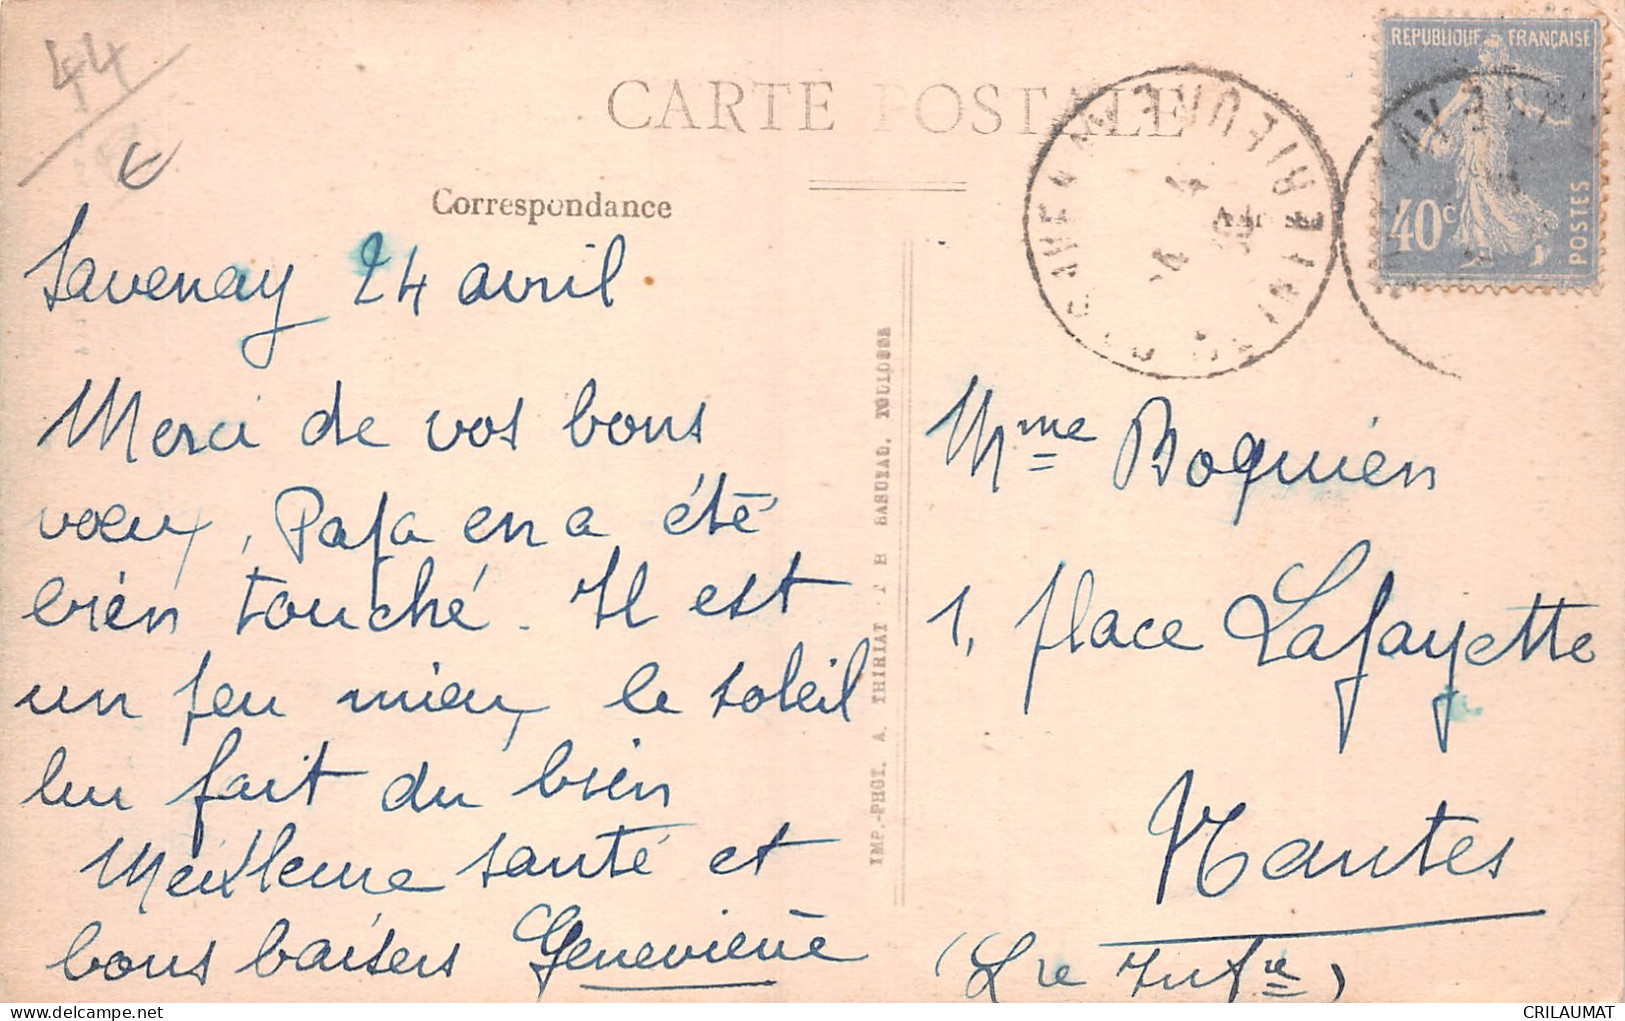 44
CARTE POSTALE
Correspondance
REPUBLIQUE FRANÇAISE
40c
POSTES
LOIRE INFERIEURE
Savenay 24 avril
Merci de vos bons
voeux, Papa en a été
bien touché. Il est
un peu mieux, le soleil
lui fait du bien
Meilleure santé et
bons baisers Geneviève
IMP.-PHOT. A. THIRIAT & BASUYAU, TOULOUSE
Mme Boquien
1, place Lafayette
Nantes
(Lre Infre)
CRILAUMAT